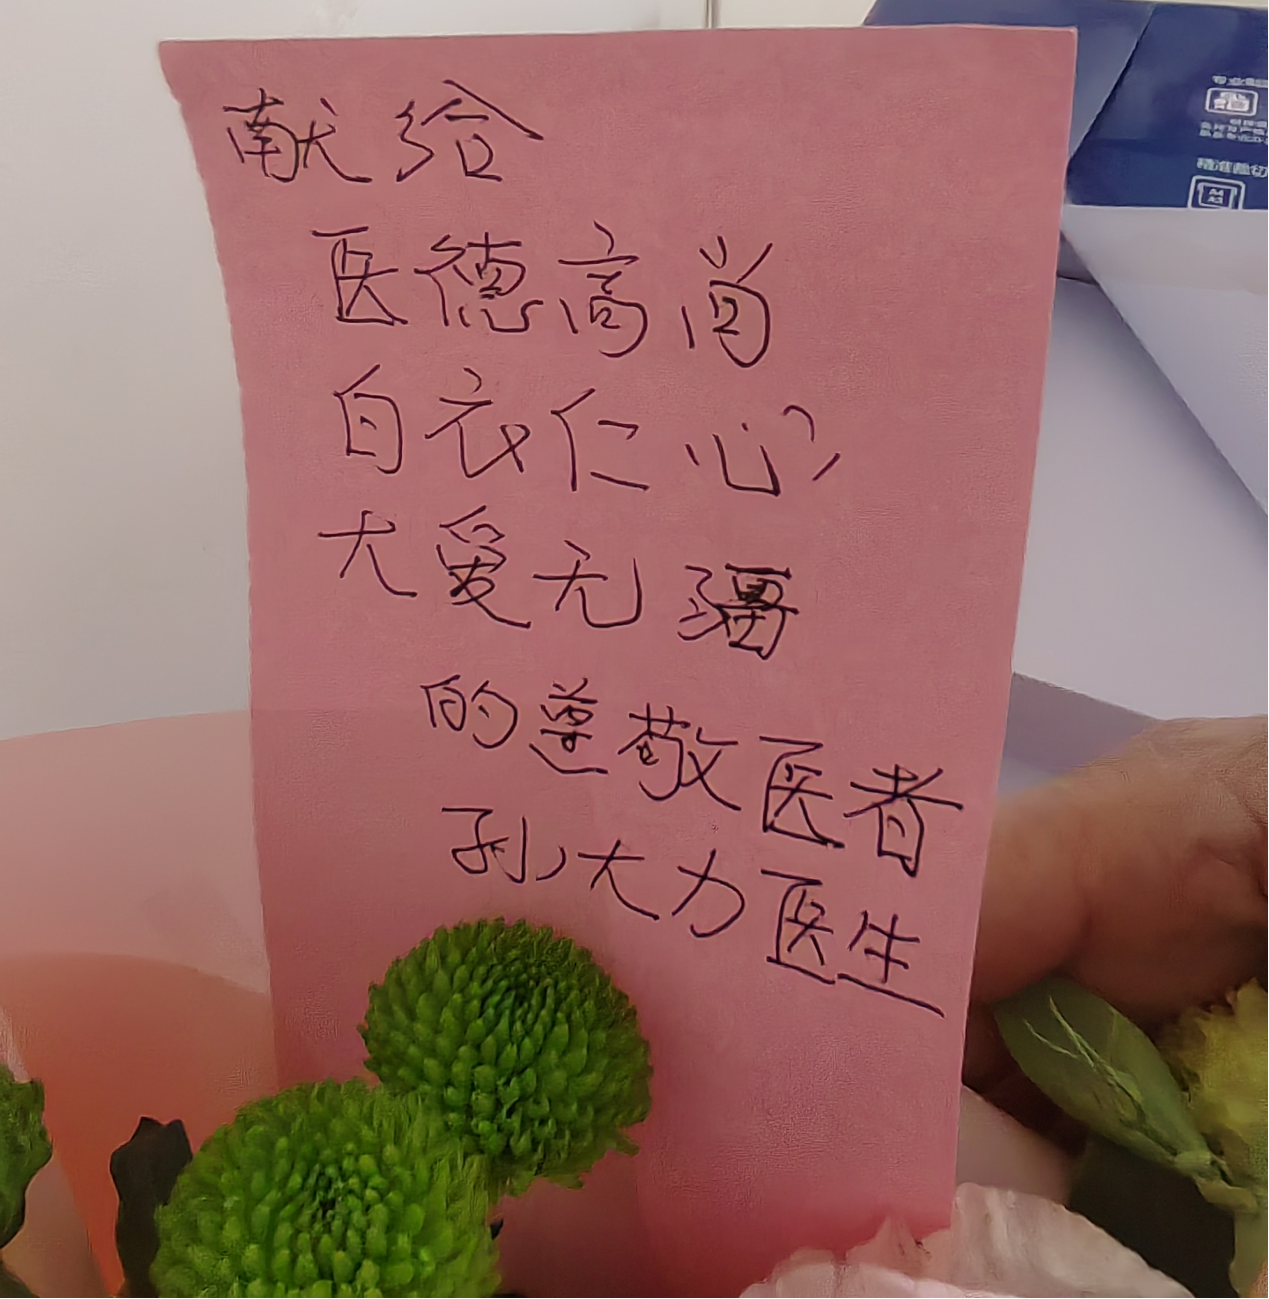 献给
医德高尚
白衣仁心
大爱无疆
的尊敬医者
孙大力医生
精准裁切
A4